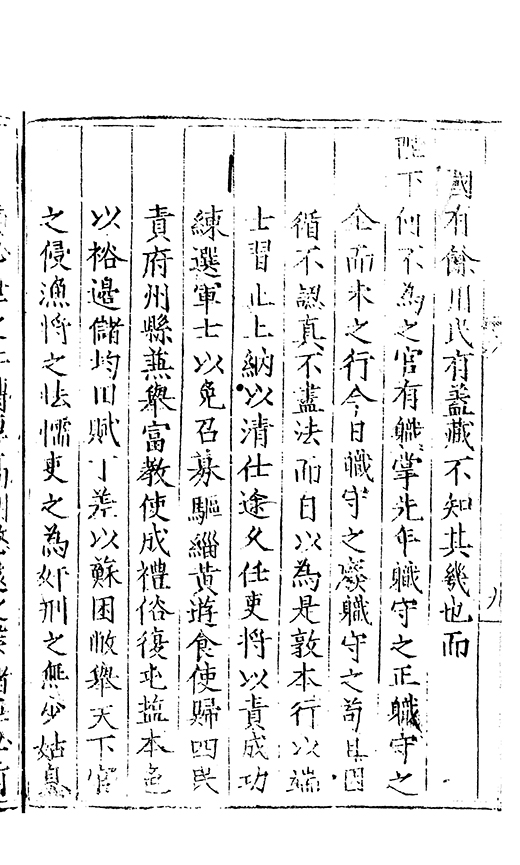 國有餘用民有蓋藏不知其幾也而
陛下何不為之官有職掌先年職守之正職守之
全而未之行今日職守之廢職守之苟且因
循不認真不盡法而自以為是敦本行以端
士習止上納以清仕途久任吏將以責成功
練選軍士以免召募驅緇黃遊食使歸四民
責府州縣兼舉富教使成禮俗復屯鹽本色
以裕邊儲均田賦丁差以蘇困敝舉天下官
之侵漁將之怯懦吏之為奸刑之無少姑息